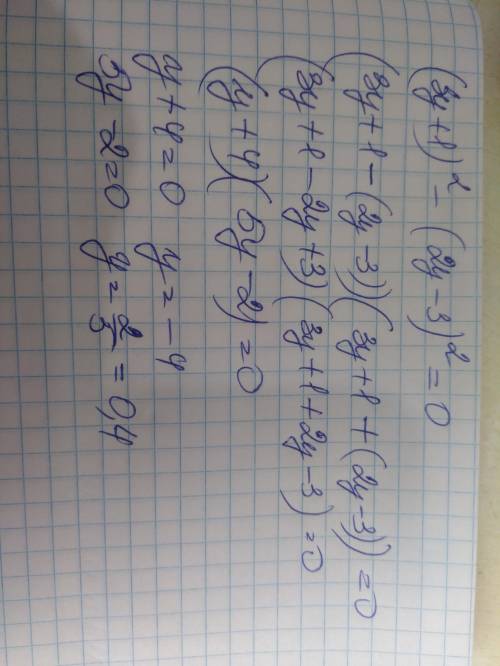 (3y+1)² - (2y-3)² = 0
(3y+1-(2y-3))(3y+1+(2y-3))=0
(3y+1-2y+3)(3y+1+2y-3)=0
(y+4)(5y-2)=0
y+4=0 y=-4
5y-2=0 y=2/5=0,4